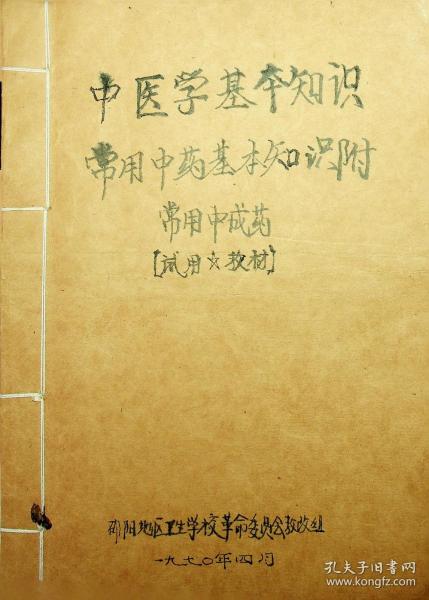 中医学基本知识
常用中药基本知识附
常用中成药
[试用☆教材]
邵阳地区卫生学校革命委员会教改组
一九七〇年四月
孔夫子旧书网
www.kongfz.com